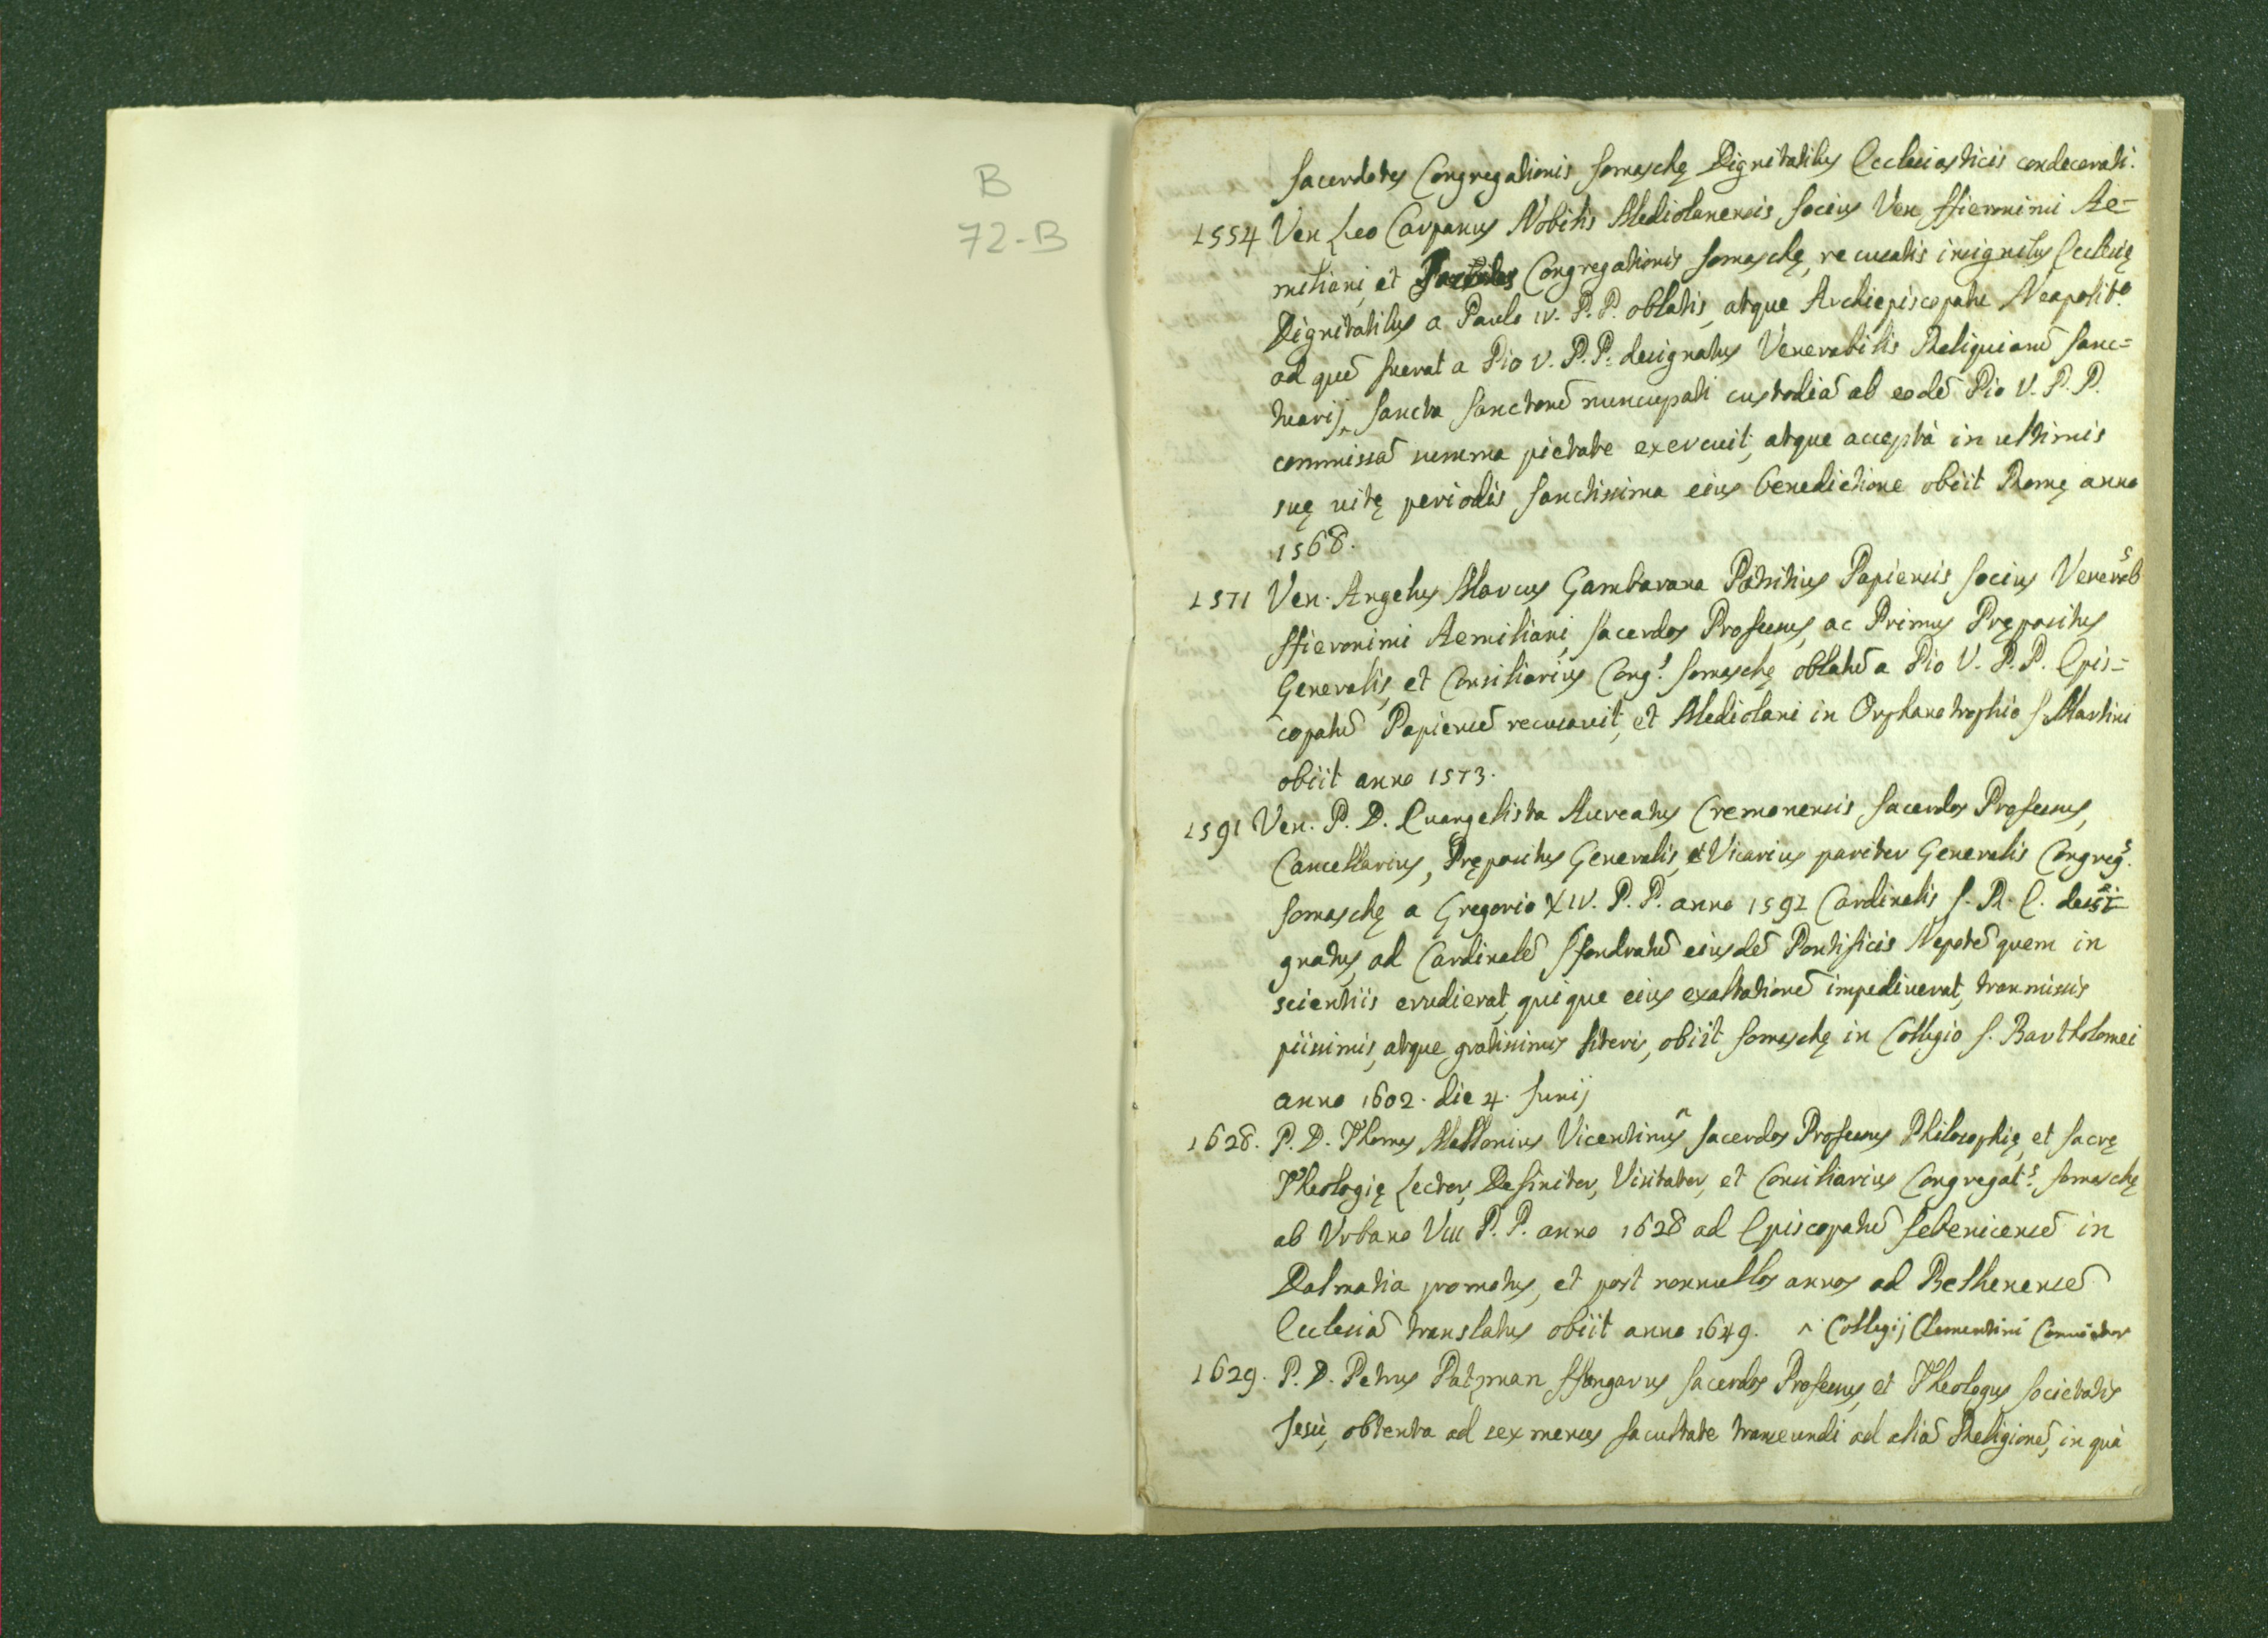 B
72-B
Sacerdotes Congregationis Somaschę Dignitatibus Ecclesiasticis condecorati.
1554 Ven Leo Carpanus Nobilis Mediolanensis socius Ven Hieronimi Ae=
miliani, et Congregationis Somaschę, recusatis insignibus Ecclesię
Dignitatibus a Paulo IV. P.P. oblatis, atque Archiepiscopatu Neapolit.º
ad quē fuerat a Pio V. P.P. designatus Venerabilis Reliquiarū Sanc=
tuarij, Sancta Sanctorū nuncupati custodiā ab eodē Pio V. P.P.
commissā summa pietate exercuit, atque acceptà in ultimis
suę uitę periodis Sanctissima eius benedictione obiit Romę anno
1568.
1571 Ven. Angelus Marcus Gambarana Patritius Papiensis socius Venerab.s
Hieronimi Aemiliani, Sacerdos Professus, ac Primus Prępositus
Generalis, et Consiliarius Cong.s Somaschę oblatū a Pio V. P.P. Epis=
copatū Papiensē recusavit, et Mediolani in Orphanotrophio S. Martini
obiit anno 1573.
1591 Ven. P. D. Euangelista Aureatus Cremonensis Sacerdos Professus,
Cancellarius, Prępositus Generalis, et Vicarius pariter Generalis Congreg.s
Somaschę a Gregorio XIV. P.P. anno 1591 Cardinalis S. R. E. desi=
gnatus, ad Cardinalē Sfondratū eiusdē Pontificis Nepotē quem in
scientiis erudierat, quique eius exaltationē impediuerat, transmissis
piissimis, atque gratissimis literis, obiit Somaschę in Collegio S. Bartholomei
anno 1602. die 4. Junij
1628. P. D. Thomas Mallonius Vicentinus ^ Sacerdos Professus Philosophię, et Sacrę
Theologię Lector, Definitor, Visitator, et Consiliarius Congregat.s Somaschę
ab Vrbano VIII P.P. anno 1628 ad Episcopatū Sebenicensē in
Dalmatia promotus, et post nonnullos annos ad Bethenensē
Ecclesiā translatus obiit anno 1649. ^ Collegij Clementini Convictor
1629. P. D. Petrus Patzman Hungarus Sacerdos Professus, et Theologus Societatis
Jesù, obtenta ad sex menses facultate transeundi ad aliā Religionē, in quà